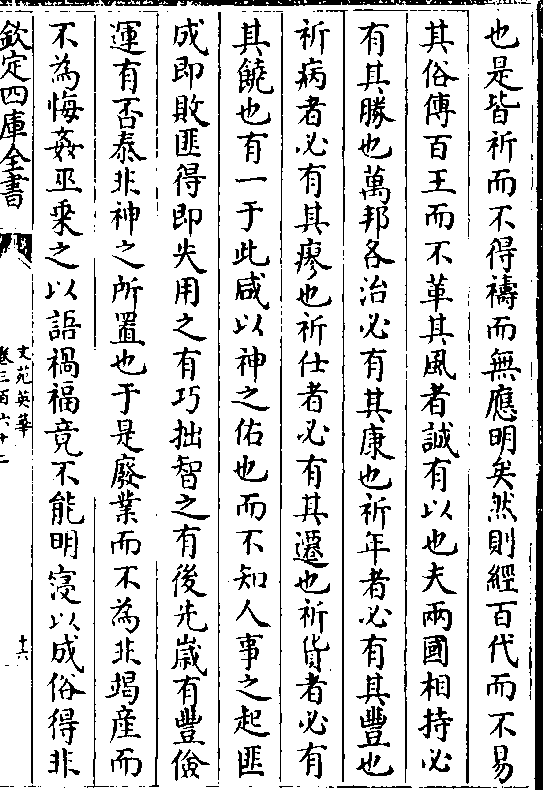 也是皆祈而不得禱而無應明矣然則經百代而不易
其俗傳百王而不革其風者誠有以也夫兩國相持必
有其勝也萬邦各治必有其康也祈年者必有其豐也
祈病者必有其瘳也祈仕者必有其遷也祈貨者必有
其饒也有一于此咸以神之佑也而不知人事之起匪
成即敗匪得即失用之有巧拙智之有後先歲有豐儉
運有否泰非神之所置也于是廢業而不為非竭產而
不為悔姦巫乗之以語禍福竟不能明寖以成俗得非
欽定四庫全書
文苑英華
卷三百六十二
十六